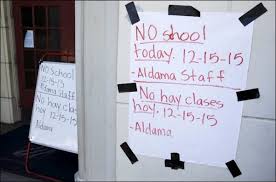 No School
12-15-15
Aldama Staff
No hay clases
hoy 12-15-15
-Aldama
NO school
today. 12-15-15
-Aldama Staff
No hay clases
hoy. 12-15-15
-Aldama